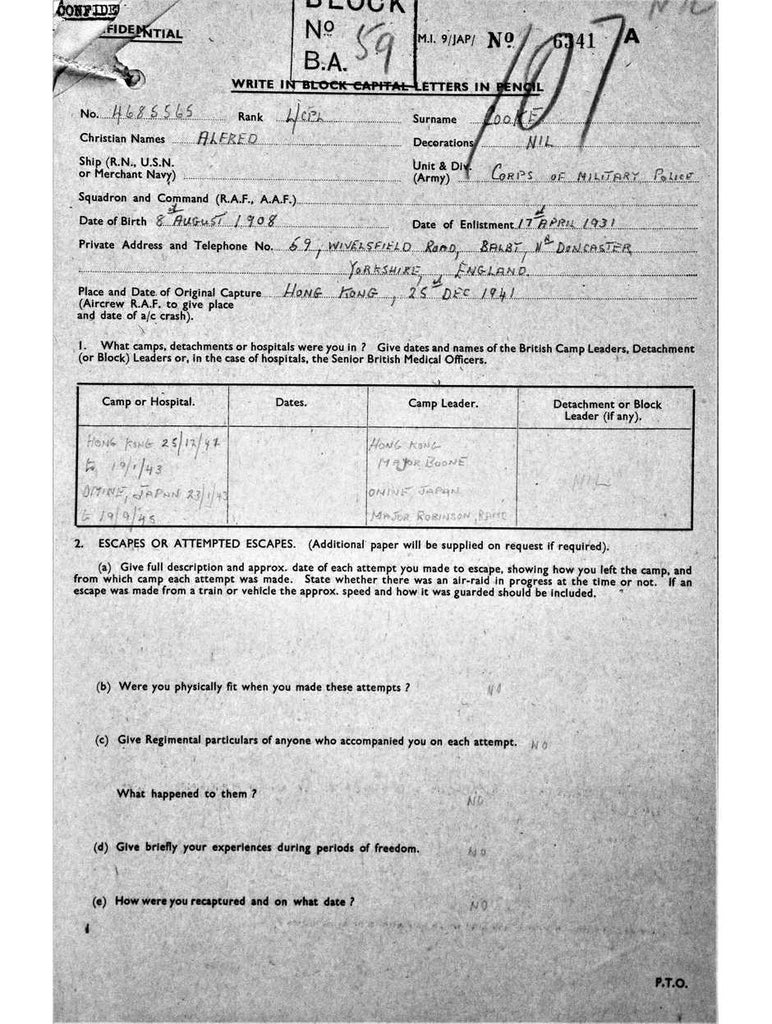 CONFIDE
FIDENTIAL
BLOCK
No 59
B.A.
NIL
M.I. 9/JAP/ No 6341 A
107
WRITE IN BLOCK CAPITAL LETTERS IN PENCIL
No. 4685565 Rank L/CPL Surname COOKE
Christian Names ALFRED Decorations NIL
Ship (R.N., U.S.N. or Merchant Navy) Unit & Div. (Army) CORPS OF MILITARY POLICE
Squadron and Command (R.A.F., A.A.F.)
Date of Birth 8th AUGUST 1908 Date of Enlistment 17th APRIL 1931
Private Address and Telephone No. 69, WIVELSFIELD ROAD, BALBY, NR DONCASTER
YORKSHIRE, ENGLAND.
Place and Date of Original Capture HONG KONG, 25th DEC 1941
(Aircrew R.A.F. to give place
and date of a/c crash).
1. What camps, detachments or hospitals were you in ? Give dates and names of the British Camp Leaders, Detachment
(or Block) Leaders or, in the case of hospitals, the Senior British Medical Officers.
Camp or Hospital. Dates. Camp Leader. Detachment or Block
Leader (if any).
HONG KONG 25/12/41 HONG KONG
to 19/1/43 MAJOR BOONE
OMINE, JAPAN 23/1/43 OMINE JAPAN NIL
to 19/9/45 MAJOR ROBINSON, RAMC
2. ESCAPES OR ATTEMPTED ESCAPES. (Additional paper will be supplied on request if required).
(a) Give full description and approx. date of each attempt you made to escape, showing how you left the camp, and
from which camp each attempt was made. State whether there was an air-raid in progress at the time or not. If an
escape was made from a train or vehicle the approx. speed and how it was guarded should be included.
(b) Were you physically fit when you made these attempts ? NO
(c) Give Regimental particulars of anyone who accompanied you on each attempt. NO
What happened to them ? NO
(d) Give briefly your experiences during periods of freedom. NO
(e) How were you recaptured and on what date ? NO
P.T.O.